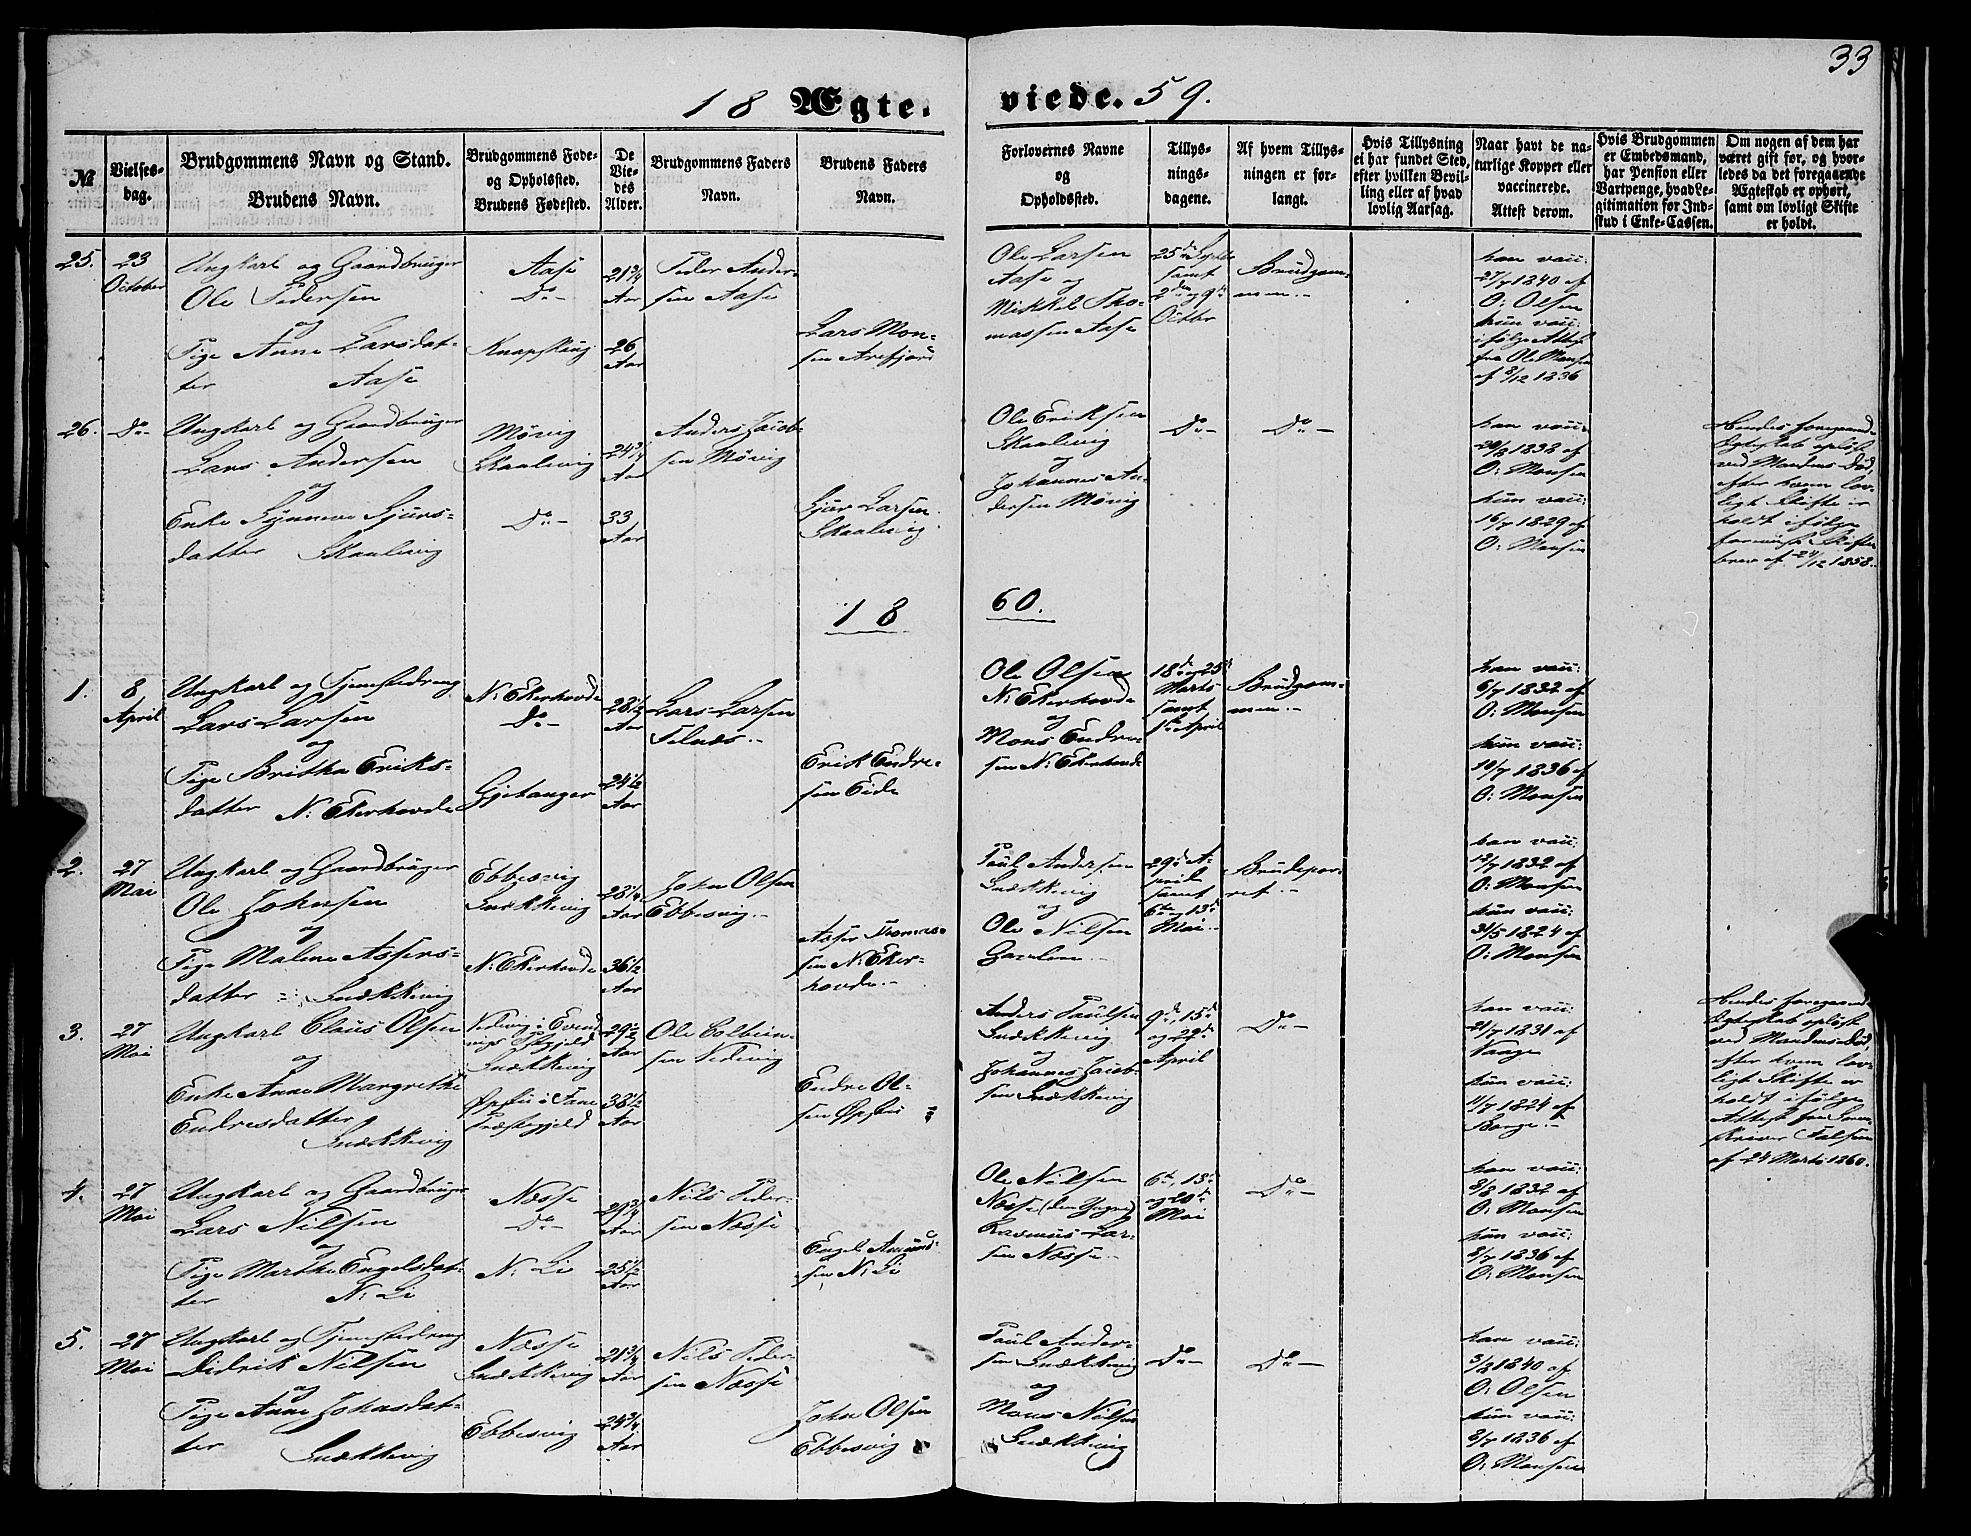 33
18 Ægte-
viede. 59.
№
Vielses-
dag.
Brudgommens Navn og Stand.
Brudens Navn.
Brudgommens Føde-
og Opholdssted.
Brudens Fødested.
De
Vie-
des
Alder.
Brudgommens Faders
Navn.
Brudens Faders
Navn.
Forlovernes Navne
og
Opholdssted.
Tillys-
nings-
dagene.
Af hvem Tillys-
ningen er for-
langt.
Hvis Tillysning
ei har fundet Sted,
efter hvilken Bevil-
ling eller af hvad
lovlig Aarsag.
Naar havt de na-
turlige Kopper eller
vaccinerede.
Attest derom.
Hvis Brudgommen
er Embedsmand,
har Pension eller
Vartpenge, hvad Le-
gitimation for Ind-
skud i Enke-Cassen.
Om nogen af dem har
været gift før, og hvor-
ledes da det foregaaende
Ægteskab er ophørt,
samt om lovligt Skifte
er holdt.
25.
23
October
Ungkarl og Gaardbruger
Ole Pedersen
og
Pige Anne Larsdat-
ter Aase
Aase
Do-
Knapskoug
21 3/4
Aar
26
Aar
Peder Ander-
sen Aase
Lars Mon-
sen Arefjord
Ole Larsen
Aase og
Mikkel Tho-
massen Aase
25de Septbr
samt
2den og 9de
Octbr
Brudgom-
men.-
han vacc:
27/7 1840 af
O: Olsen
hun vacc:
ifølge Attest
fra Ole Monsen
af 8/12 1836
26.
Do-
Ungkarl og Gaardbruger
Lars Andersen
og
Enke Synneve Sjurs-
datter Skaalevig
Møvig
Skaalevig
Do-
24 3/4
Aar
33
Aar
Anders Jacob-
sen Møvig
Sjur Larsen
Skaalevig
Ole Eriksen
Skaalevig
og
Johannes An-
dersen Møvig
Do-
Do-
han vacc:
29/8 1838 af
O: Monsen
hun vacc:
16/7 1829 af
O: Monsen
Hendes foregaaende
Ægteskab opløst
ved Mandens Død,
efter hvem lov-
ligt Skifte er
holdt ifølge
forevist Skifte-
brev af 24/12 1858.
18 60.
1.
8
April
Ungkarl og Tjenestedreng
Lars Larsen
og
Pige Britha Eriks-
datter N: Ekerhovde
N: Ekerhovde
Do-
Gjetanger
28 1/2
Aar
24 1/2
Aar
Lars Larsen
Telnæs.-
Erik Endre-
sen Eide
Ole Olsen
N: Ekerhovde
og
Mons Endre-
sen N: Ekerhovde
18de og 25de
Marts
samt
1ste April
Brudgom-
men.-
han vacc:
6/7 1832 af
O: Monsen
hun vacc:
10/7 1836 af
O: Monsen
2.
27
Mai
Ungkarl og Gaardbruger
Ole Johnsen
og
Pige Malene Assers-
datter - Snekkevig
Ebbesvig
Snekkevig
N: Ekerhovde
28 1/4
Aar
36 1/2
Aar
John Olsen
Ebbesvig.-
Asser Thomes-
sen N: Eker-
hovde.-
Paul Andersen
Snekkevig
og
Ole Nilsen
29de A-
pril
samt
6te og 13de
Mai.-
Brudepar-
ret.-
han vacc:
12/7 1832 af
O: Monsen
hun vacc:
31/5 1824 af
O: Monsen
3.
27
Mai
Ungkarl Claus Olsen
og
Enke Anne Margrethe
Endresdatter
Snekkevig
Snekkevig
i Fane
Præstegjeld
29 1/2
Aar
38 1/2
Aar
Ole Colbein-
sen Vedevig
Endre Ol-
sen
Anders Paulsen
Snekkevig
og
Johannes Jacob-
sen Snekkevig
9de, 15de
og 29de
April
Do-
han vacc:
21/7 1831 af
hun vacc:
11/7 1824 af
Hendes foregaaende
Ægteskab opløst
ved Mandens Død
efter hvem lov-
ligt Skifte er
holdt ifølge
Attest fra Soren-
skriver Falsen
af 24 Marts 1860.
4.
27
Mai
Ungkarl og Gaardbruger
Lars Nilsen
og
Pige Marthe Engelsdat-
ter N: Li
Næsse
Do-
N: Li
29 3/4
Aar
25 1/2
Aar
Nils Peder-
sen Næsse
Engel Amund-
sen N: Li
Ole Nilsen
Næsse (den Yngre)
Rasmus Lar-
sen Næsse.-
6te, 13de
og 20de
Mai
Do-
han vacc:
8/8 1832 af
O: Monsen
hun vacc:
8/7 1836 af
O: Monsen
5.
27
Mai
Ungkarl og Tjenestedreng
Didrik Nilsen
og
Pige Anne Johnsdat-
ter Snekkevig
Næsse
Snekkevig
Ebbesvig
21 3/4
Aar
24 3/4
Aar
Nils Peder-
sen Næsse
John Olsen
Ebbesvig
Paul Ander-
sen Snekkevig
og
Mons Nilsen
Snekkevig
Do-
Do-
han vacc:
3/8 1840 af
O: Olsen
hun vacc:
8/7 1836 af
O: Monsen